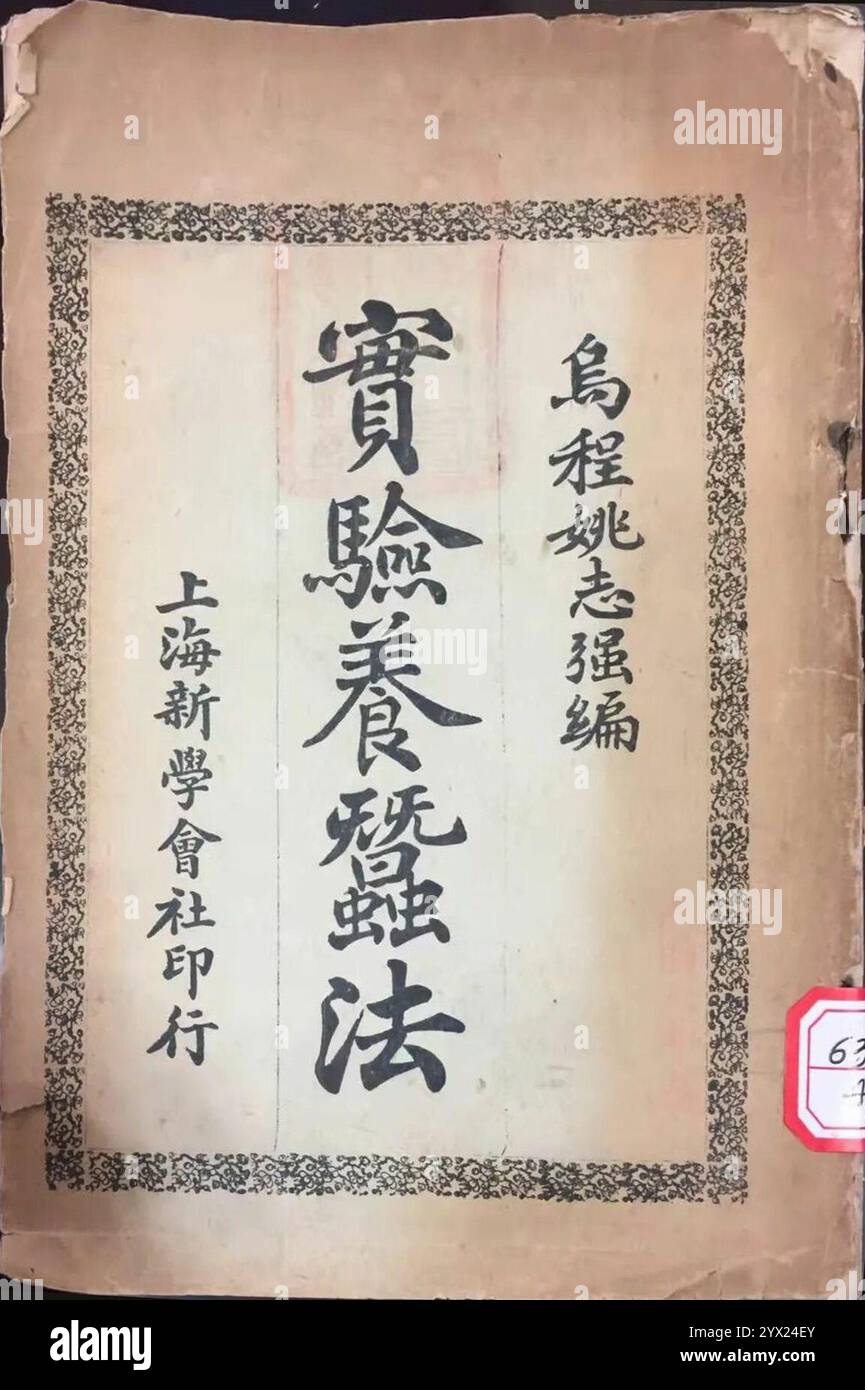 烏程姚志强編
實驗養蠶法
上海新學會社印行
63
alamy
Image ID: 2YX24EY
www.alamy.com